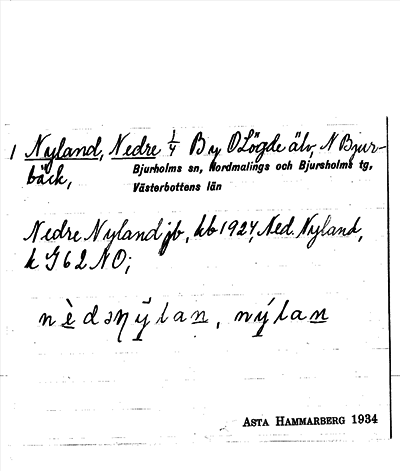 1 Nyland, Nedre 1/4 By O Lögde älv, N Bjur-
bäck,
Bjurholms sn, Nordmalings och Bjursholms tg,
Västerbottens län
Nedre Nyland jb, kb 1927, Ned. Nyland,
k G 62 NO;
nèdəɳy̆lan, nýlan
ASTA HAMMARBERG 1934